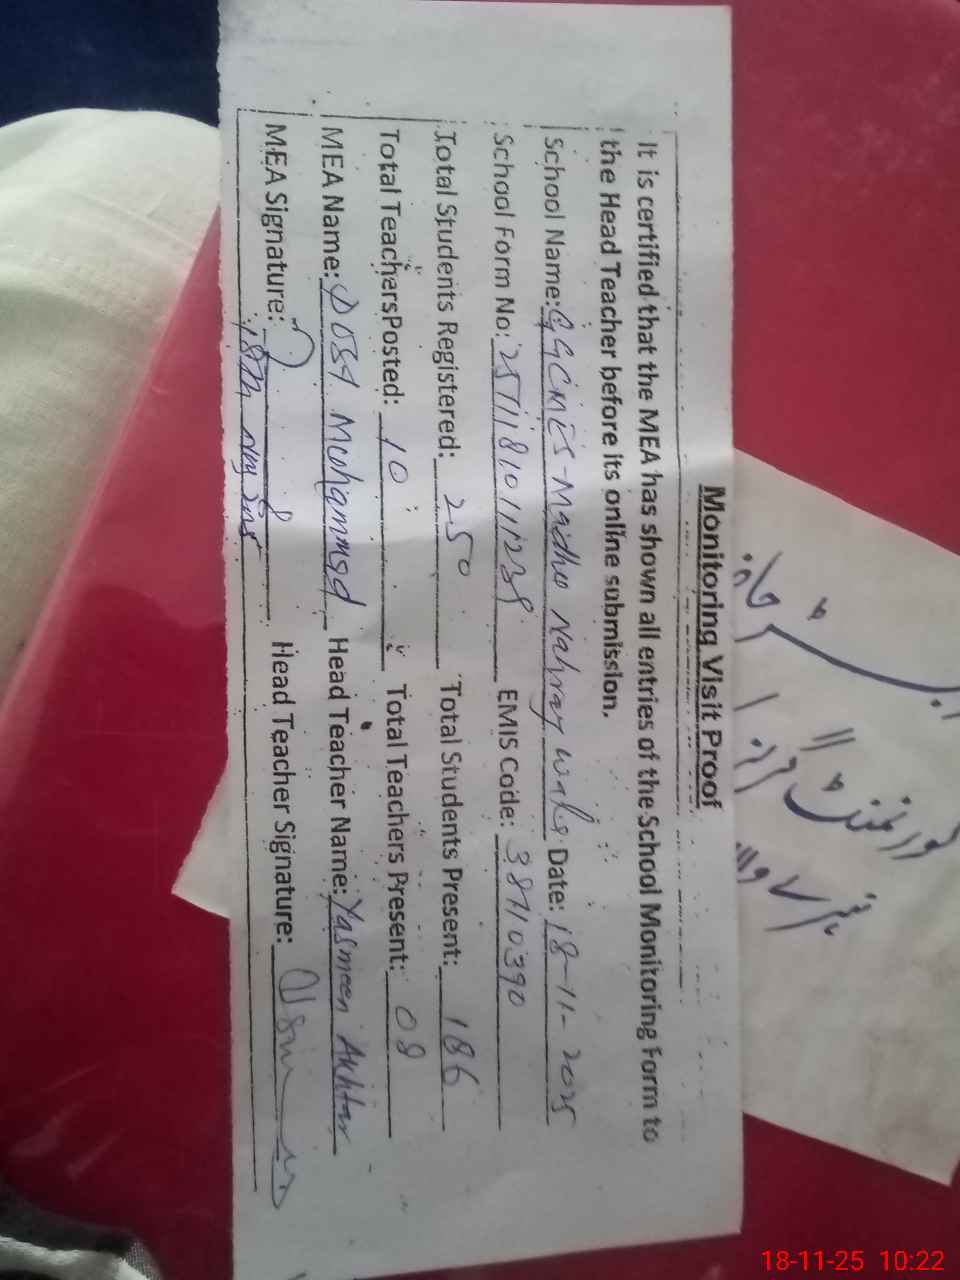 Monitoring Visit Proof
It is certified that the MEA has shown all entries of the School Monitoring Form to
the Head Teacher before its online submission.
School Name: GGCMES-Madho Nahray wala Date: 18-11-2025
School Form No: EMIS Code: 38710390
Total Students Registered: 250 Total Students Present: 186
Total TeachersPosted: 10 Total Teachers Present: 08
MEA Name: Dost Mohammad Head Teacher Name: Yasmeen Akhtar
MEA Signature: Head Teacher Signature:
18th Nov
18-11-25 10:22